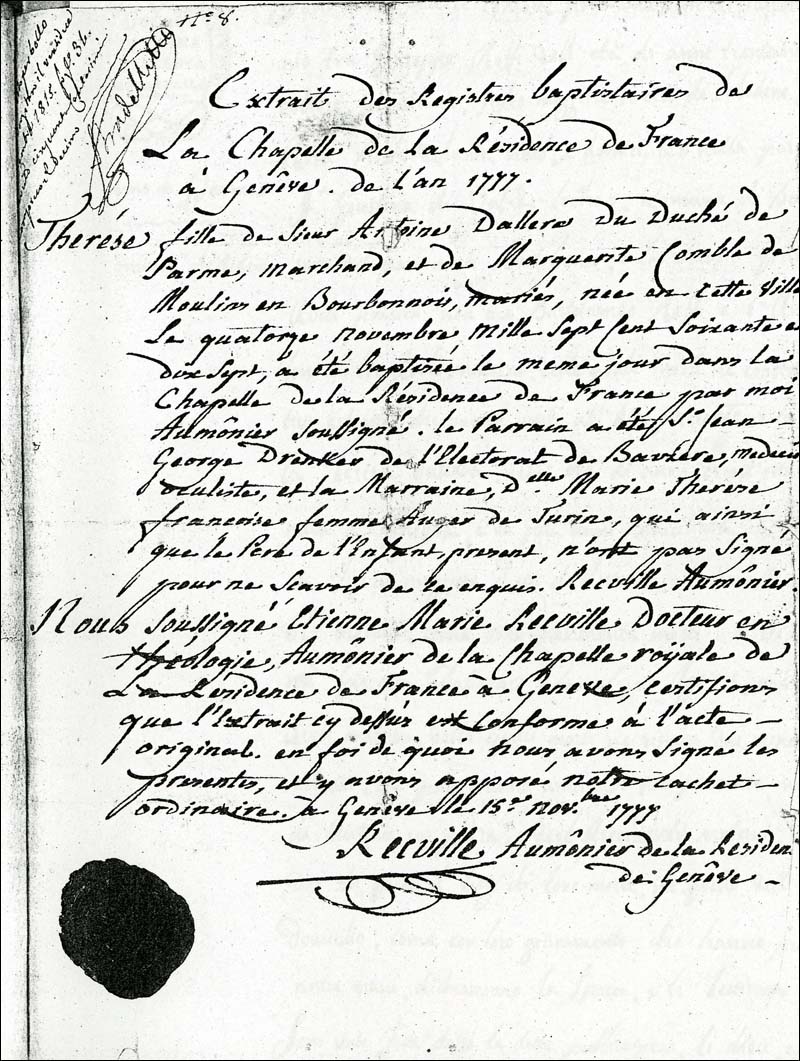 N.° 8.
1815.
Extrait des Registres baptistaires de
La Chapelle de la Résidence de France
à Genêve. de l'an 1777.
Therése fille de Sieur Antoine Dallera du Duché de
Parme, marchand, et de Marguerite Comble de
Moulins en Bourbonnois, mariés, née en cette Ville
Le quatorze novembre mille sept cent soixante et
dix sept, a été baptisée le meme jour dans la
Chapelle de la Résidence de France par moi
Aumônier soussigné. le Parrain a été S.r Jean
George Drenker de l'Electorat de Baviere, medecin
oculiste, et la Marraine, d.elle Marie Therése
francoise femme Auger de Turin, qui ainsi
que le Pere de l'Enfant, present, n'ont pas signé
pour ne Scavoir de ce enquis. Recville Aumônier.
Nous soussigné Etienne Marie Recville Docteur en
théologie, Aumônier de la Chapelle royale de
La Résidence de France à Geneve, certifions
que l'Extrait cy dessus est conforme à l'acte
original. en foi de quoi nous avons signé les
presentes, et y avons apposé notre cachet
ordinaire. à Genêve le 15.e Nov.bre 1777
Recville Aumônier de la Residen
de Genêve